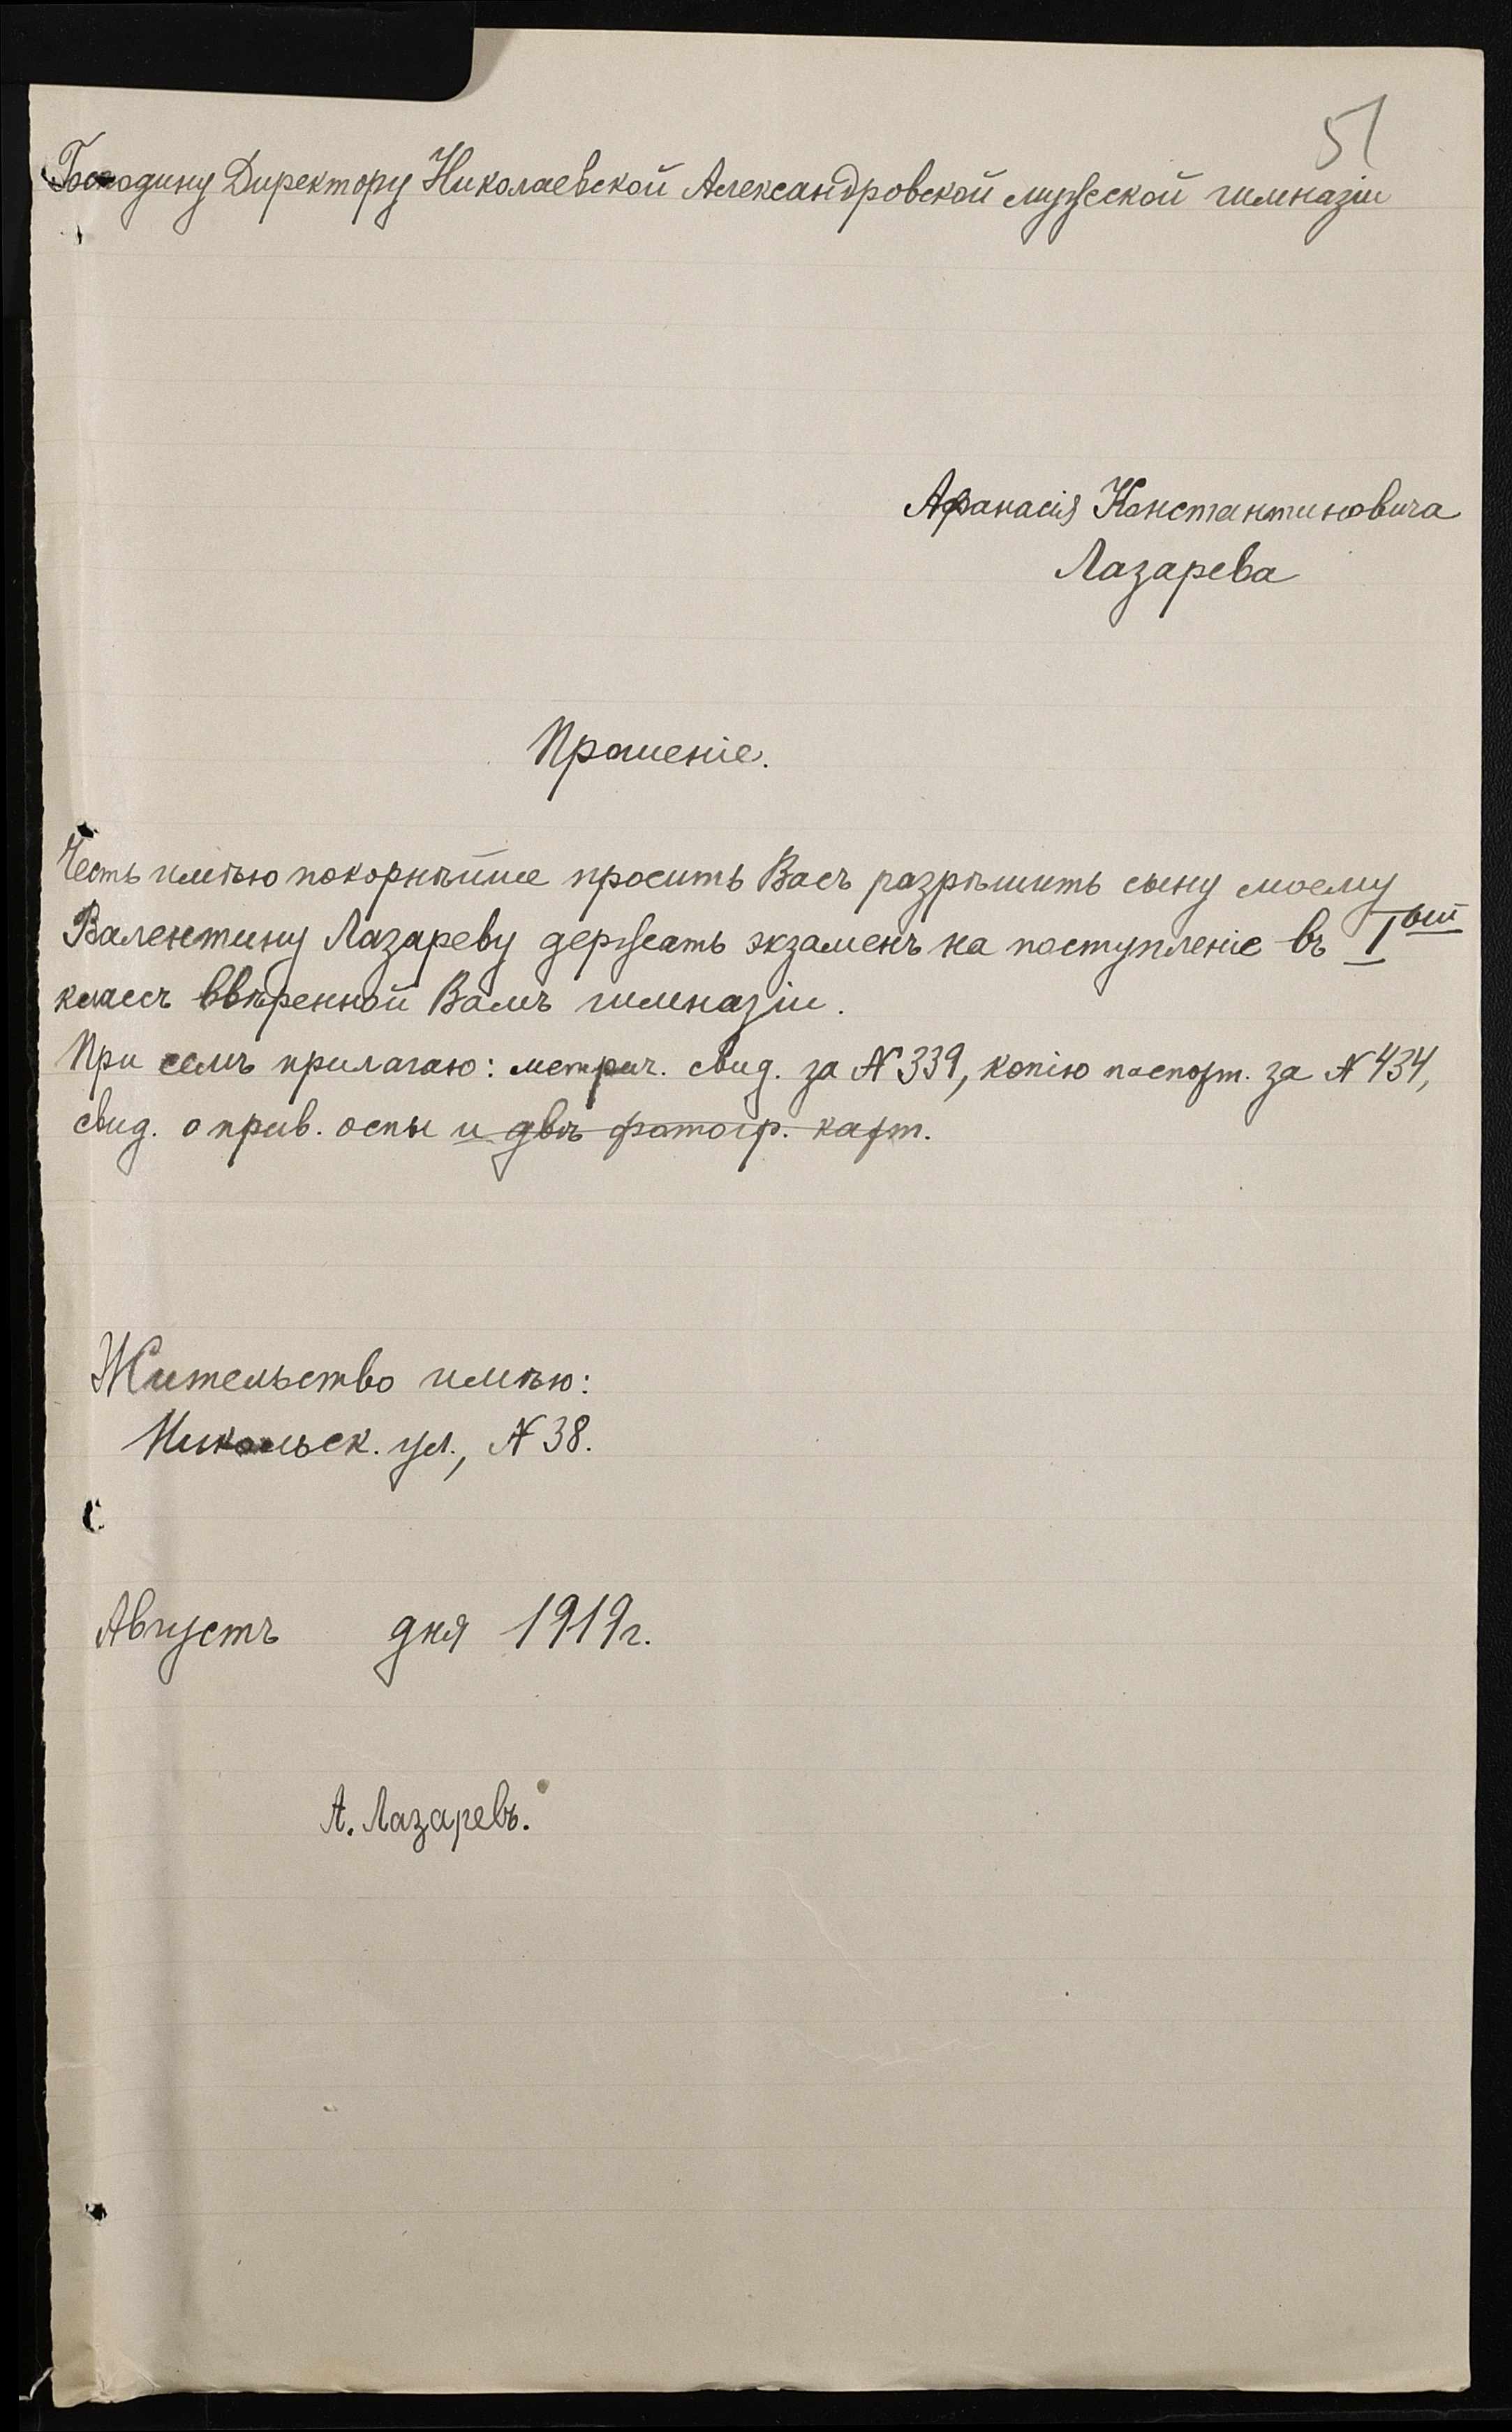 51
Господину Директору Николаевской Александровской мужеской гимназіи
Афанасія Константиновича
Лазарева
Прошеніе.
Честь имѣю покорнѣйше просить Васъ разрѣшить сыну моему
Валентину Лазареву держать экзаменъ на поступленіе въ Iый
классъ ввѣренной Вамъ гимназіи.
При семъ прилагаю: метрич. свид. за № 339, копію паспорт. за № 434,
свид. о прив. оспы и двѣ фотогр. карт.
Жительство имѣю:
Никольск. ул., № 38.
Августъ дня 1919 г.
А. Лазаревъ.